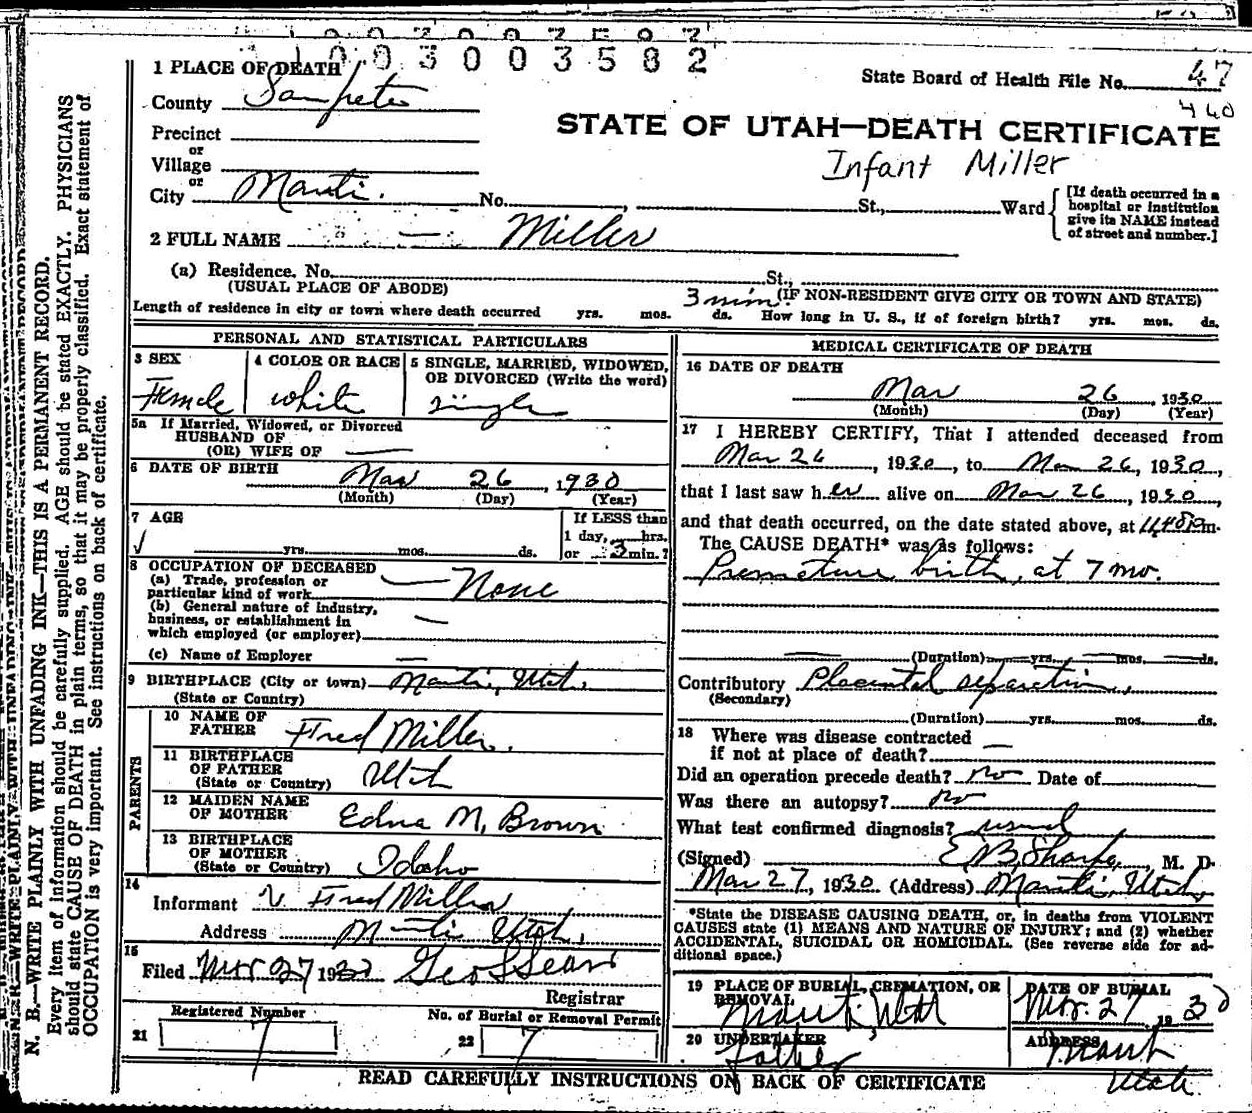 0 0 3 0 0 3 5 8 2
1 PLACE OF DEATH
State Board of Health File No. 47
County Sanpete
460
STATE OF UTAH—DEATH CERTIFICATE
Precinct
or
Infant Miller
Village
or
City Manti. No. , St., Ward
[If death occurred in a
hospital or institution
give its NAME instead
of street and number.]
2 FULL NAME — Miller
(a) Residence. No. St.,
(USUAL PLACE OF ABODE) 3 min (IF NON-RESIDENT GIVE CITY OR TOWN AND STATE)
Length of residence in city or town where death occurred yrs. mos. ds. How long in U. S., if of foreign birth? yrs. mos. ds.
PERSONAL AND STATISTICAL PARTICULARS
3 SEX
Female
4 COLOR OR RACE
white
5 SINGLE, MARRIED, WIDOWED,
OR DIVORCED (Write the word)
single
5a If Married, Widowed, or Divorced
HUSBAND OF
(OR) WIFE OF —
6 DATE OF BIRTH Mar 26, 1930
(Month) (Day) (Year)
7 AGE
If LESS than
1 day, hrs.
yrs. mos. ds. or 3 min.?
8 OCCUPATION OF DECEASED
(a) Trade, profession or
particular kind of work — None
(b) General nature of industry,
business, or establishment in
which employed (or employer) —
(c) Name of Employer —
9 BIRTHPLACE (City or town) Manti, Utah.
(State or Country)
PARENTS
10 NAME OF
FATHER Fred Miller.
11 BIRTHPLACE
OF FATHER
(State or Country) Utah
12 MAIDEN NAME
OF MOTHER Edna M. Brown
13 BIRTHPLACE
OF MOTHER
(State or Country) Idaho
14
Informant V. Fred Miller
Address Manti Utah.
15
Filed Mar 27 1930 Geo S Sears
Registrar
Registered Number
21 7
No. of Burial or Removal Permit
22 7
MEDICAL CERTIFICATE OF DEATH
16 DATE OF DEATH
Mar 26, 1930
(Month) (Day) (Year)
17 I HEREBY CERTIFY, That I attended deceased from
Mar 26, 1930, to Mar 26, 1930,
that I last saw her alive on Mar 26, 1930,
and that death occurred, on the date stated above, at m.
The CAUSE DEATH* was as follows:
Premature birth, at 7 mo.
— (Duration) — yrs. — mos. — ds.
Contributory Placental separation.
(Secondary)
(Duration) yrs. mos. ds.
18 Where was disease contracted
if not at place of death? —
Did an operation precede death? no Date of
Was there an autopsy? no
What test confirmed diagnosis? usual
(Signed) E B Sharp, M. D.
Mar 27, 1930 (Address) Manti, Utah,
*State the DISEASE CAUSING DEATH, or, in deaths from VIOLENT
CAUSES state (1) MEANS AND NATURE OF INJURY; and (2) whether
ACCIDENTAL, SUICIDAL OR HOMICIDAL. (See reverse side for ad-
ditional space.)
19 PLACE OF BURIAL, CREMATION, OR
REMOVAL
Manti, Utah
DATE OF BURIAL
Mar. 27 1930
20 UNDERTAKER
father
ADDRESS
Manti
Utah.
READ CAREFULLY INSTRUCTIONS ON BACK OF CERTIFICATE
N. B.—WRITE PLAINLY WITH UNFADING INK—THIS IS A PERMANENT RECORD.
Every item of information should be carefully supplied. AGE should be stated EXACTLY. PHYSICIANS
should state CAUSE OF DEATH in plain terms, so that it may be properly classified. Exact statement of
OCCUPATION is very important. See instructions on back of certificate.